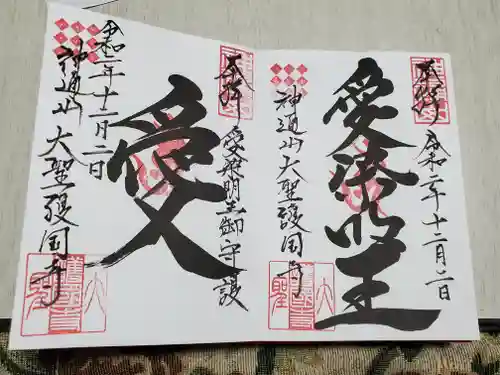 奉拝
令和二年十二月二日
愛染明王
神通山 大聖護国寺
奉拝
愛染明王御守護
愛
令和二年十二月二日
神通山 大聖護国寺